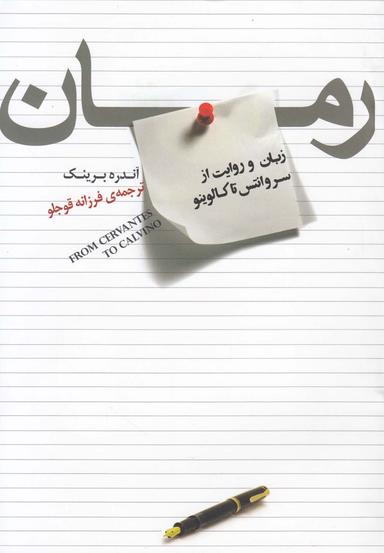 رمان
زبان و روایت از
سروانتس تا کالوینو
آندره برینک
ترجمه‌ی فرزانه قوجلو
FROM CERVANTES
TO CALVINO